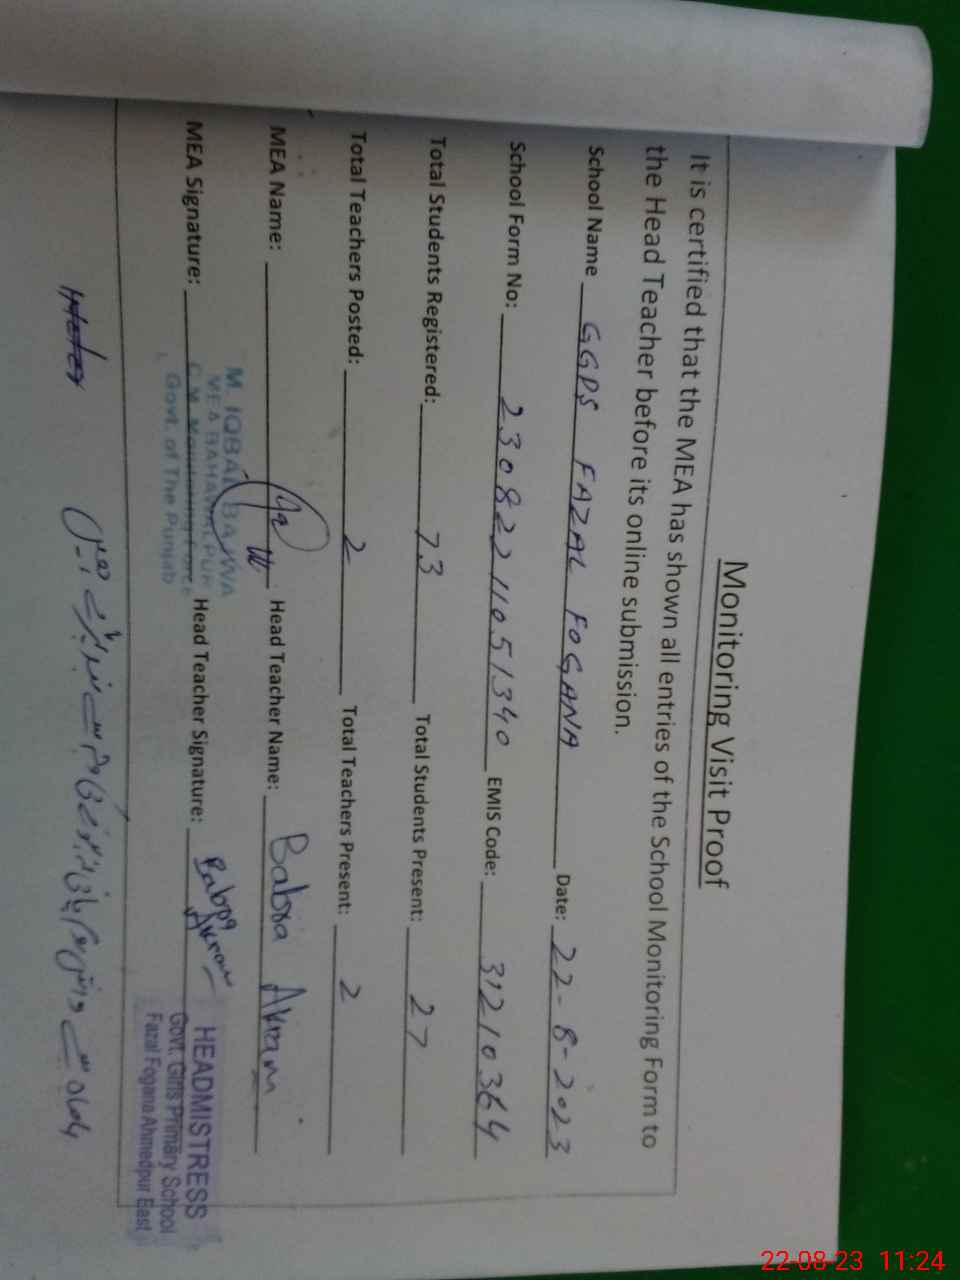 Monitoring Visit Proof
It is certified that the MEA has shown all entries of the School Monitoring Form to
the Head Teacher before its online submission.
School Name GGPS FAZAL FOGANA Date: 22-8-2023
School Form No: 23082211051340 EMIS Code: 31210364
Total Students Registered: 73 Total Students Present: 27
Total Teachers Posted: 2 Total Teachers Present: 2
MEA Name: Head Teacher Name: Babra Akram
MEA Signature: Head Teacher Signature: Babra Akram
M. IQBAL BAJWA
MEA BAHAWALPUR
C.M. Monitoring Force
Govt. of The Punjab
HEADMISTRESS
Govt. Girls Primary School
Fazal Fogana Ahmedpur East
22-08-23 11:24